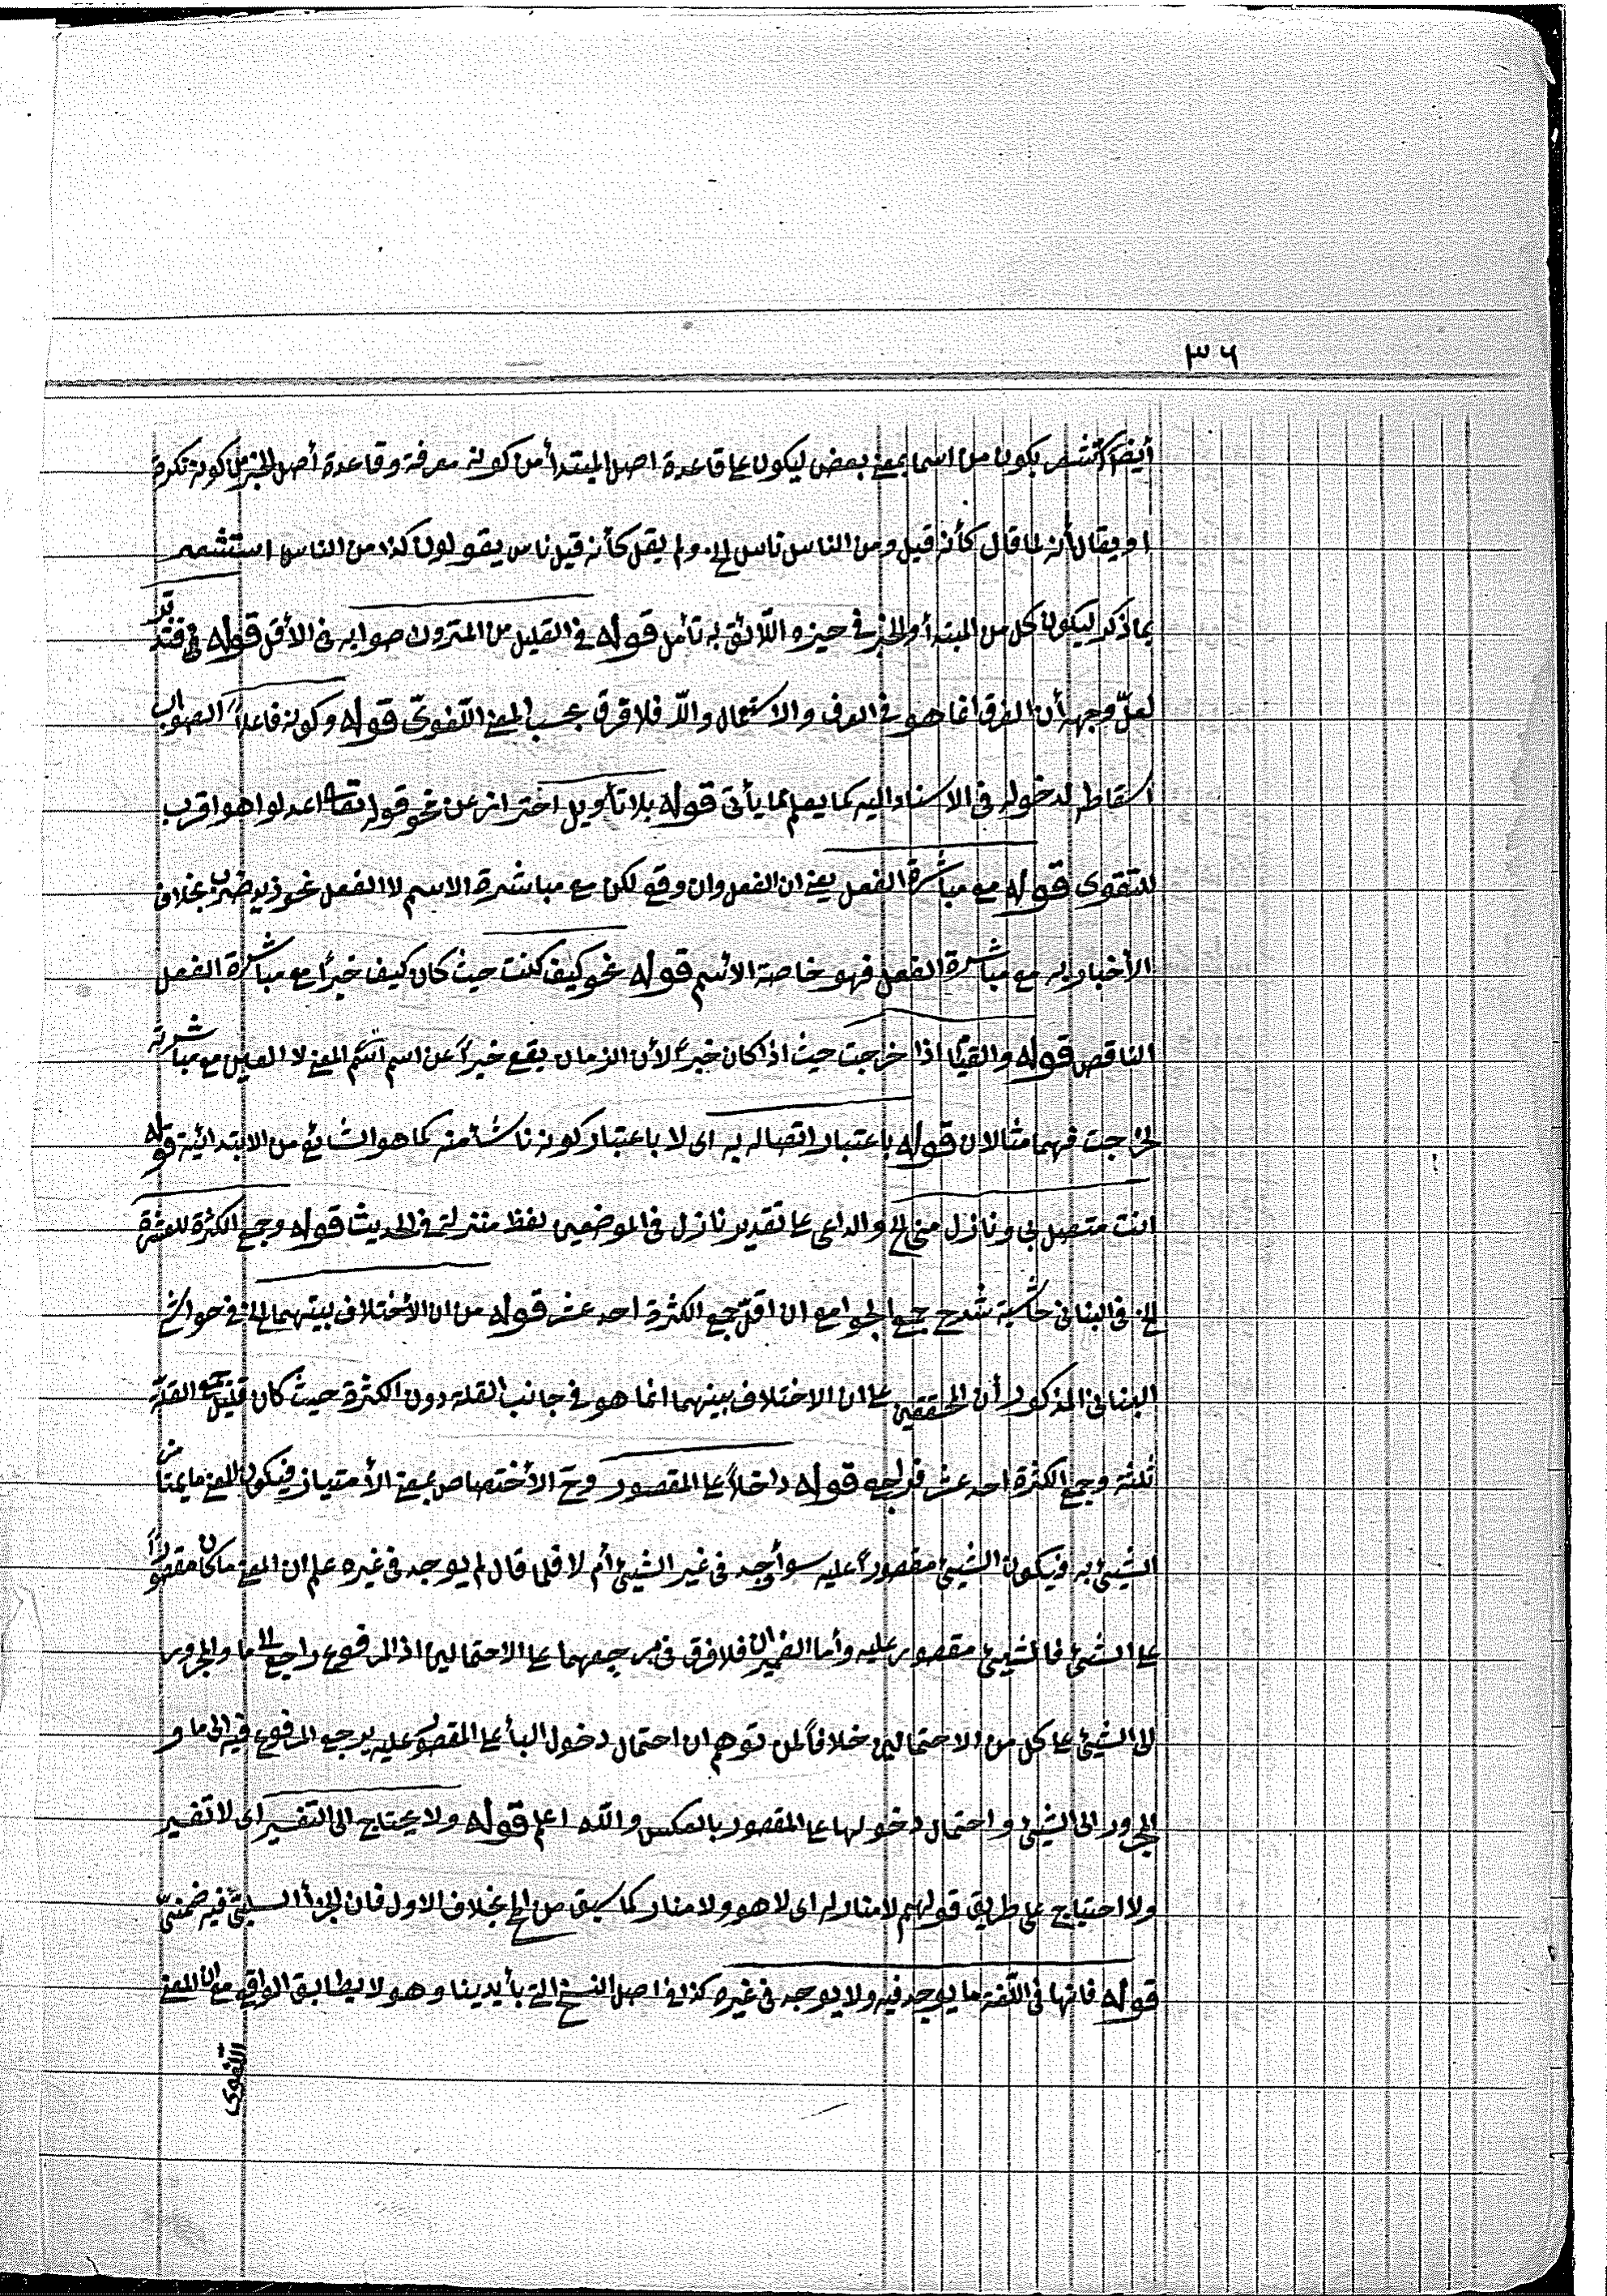 ٣٦
أيضا استشعر بكون من اسما بمعنى بعض ليكون عا قاعدة اصل المبتدأ من كونه معرفة وقاعدة أصل الخبر من كونه نكرة
او يقال أنه لما قال كأنه قيل ومن الناس ناس الخ. ولم يقل كأنه قيل ناس يقولون كذا من الناس استشعر
بما ذكر ليكون كل من المبتدأ والخبر في حيزه اللائق به تأمل قوله في القليل من المتروك صوابه في الأقل قوله في فتدبر
لعلّ وجهه أن الفرق انما هو في العرف والاستعمال والّا فلا فرق بحسب المعنى اللّغويّ قوله وكونه فاعلاً الصواب
اسقاطه لدخوله في الاسناد اليه كما يعلم مما يأتى قوله بلا تأويل احتراز عن نحو قوله تعالى اعدلوا هو اقرب
للتقوى قوله مع مباشرة الفعل يعنى ان الفعل وان وقع لكن مع مباشرة الاسم لا الفعل نحو زيد ضرب بخلاف
الأخبار به مع مباشرة الفعل فهو خاصة الاسم قوله نحو كيف كنت حيث كان كيف خبرًا مع مباشرة الفعل
الناقص قوله والقيٰا اذا خرجت حيث اذا كان خبرًا لأن الزمان يقع خبراً عن اسم المعنى لا العين مع مباشرته
لخرجت فهما مثالان قوله باعتبار اتصاله به اى لا باعتبار كونه ناشأ منه كما هو الشائع من الابتدائية قوله
انت متصل بى ونازل منى الخ والداعى عا تقدير نازل في الموضعين لفظ منزلة في الحديث قوله وجمع الكثرة للعشرة
الخ. في البنانى حاشية شرح جمع الجوامع ان اقلّ جمع الكثرة احد عشر قوله من ان الأختلاف بينهما الخ في حواشى
البنانى المذكور أن المحققين عا ان الاختلاف بينهما انما هو في جانب القلة دون الكثرة حيث كان جمع القلّة
ثلثة وجمع الكثرة احد عشر فراجعه قوله داخلاً عا المقصور وحّ الأختصاص بمعنى الأمتياز فيكون المعنى ما يمتاز
الشيئ به فيكون الشيئ مقصوراً عليه سوأ وجد في غير الشيئ أم لا فلما قال لم يوجد في غيره علم ان المعنى ما كان مقصوراً
عا الشيئ فالشيئ مقصور عليه وأما الضميران فلا فرق في مرجعهما عا الاحتمالين اذ المرفوع راجع الى ما والمجرور
الى الشيئ عا كل من الاحتمالين خلافاً لمن توهم ان احتمال دخول البأ عا المقصور عليه يرجع المرفوع فيه الى ما و
المجرور الى الشيئ و احتمال دخولها عا المقصور بالعكس والله اعلم قوله ولا يحتاج الى التفسير اى لا تفسير
ولا احتياج على طريق قولهم لا منار له اى لا هو ولا منار كما سبق من الخ بخلاف الاول فان الجزأ السلبىّ فيه ضمنىّ
قوله فانها في اللّغة ما يوجد فيه ولا يوجد في غيره كذا في اصل النسخ التى بأيدينا وهو لا يطابق الواقع مع ان المعنى
اللّغوى